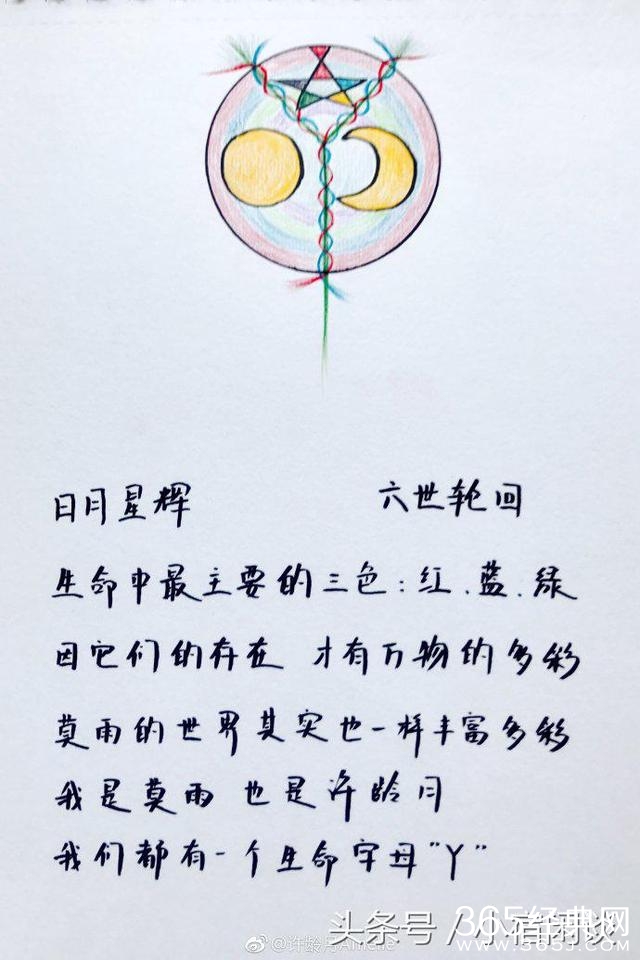 日月星辉 六世轮回
生命中最主要的三色:红.蓝.绿
因它们的存在 才有万物的多彩
莫雨的世界其实也一样丰富多彩
我是莫雨 也是许龄月
我们都有一个生命字母"丫"
头条号 / 小宿闲谈
365经典网
www.3653.com
@许龄月Amelie